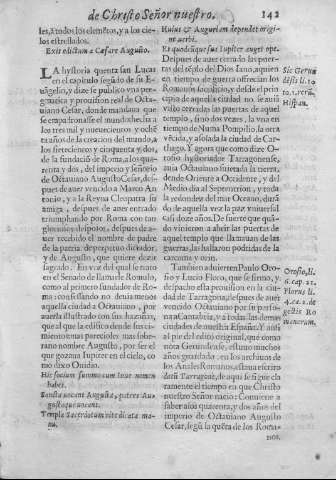 de Christo Señor nuestro. 142
les, à todos los elemẽtos, y a los cie-
los estrellados.
Exijt edictum a Cæsare Augusto.
LA hystoria quenta san Lucas
en el capitulo segũdo de su E-
uãgelio, y dize se publico vna pre-
gmatica y prouision real de Octa-
uiano Cesar, donde mandaua que
se
los tres mil y nouecientos y ochẽ
ta años de la creacion del mundo, a
los setecientos y cinquenta y dos,
de la fundaciõ de Roma, a los qua-
renta y dos, del imperio y señorio
de Octauiano Augusto Cesar, des-
pues de auer vencido a Marco An
tonio, y a la Reyna Cleopatra su
amiga, despues de auer entrado
triumphando por Roma con tan
gloriosos despojos, despues de a-
uer recebido el nombre de padre
de la patria de perpetuo dictador,
y de Augusto, que quiere dezir
sagrado. En voz del qual se trato
en el Senado se llamasse Romulo,
como al primero fundador de Ro-
ma: confessando no deuia menos
aquella ciudad a Octauiano, por
auerla illustrado con sus hazañas,
que al que la edificò desde sus ci-
mientos: mas pareciolo mas sobe-
rano nombre Augusto, por ser el
que gozaua Iupiter en el cielo, co
mo dixo Ouidio.
Hic socium summo cum Ioue nomen
habet.
Sancta vocant Augusta, patres Au-
gusta vocant.
Templa Sacerdotum rite dicata ma-
nu.
Huius & Augurium dependet origi-
ne verbi.
Et quodcũque sua Iupiter auget ope.
Despues de auer cerrado las puer-
tas del tẽplo del Dios Iano, a quien
en tiempo de guerra ofrecian los
Romanos sacrificio, y desde el prin
cipio de aquella ciudad no se auiã
visto cerradas las puertas de aquel
templo, sino dos vezes, la vna en
tiempo de Numa Pompilio, la otra
vẽcida, y assolada la ciudad de Car-
thago. Y agora que como dize O-
rosio hystoriador Tarragonense,
auia Octauiano sujetado la tierra,
desde Oriente a Occidente, y del
Medio dia al Septentrion, y toda
la redondez del mar Oceano, durã
do de aquella vez la paz vniuersal
casi doze años. De suerte que quã-
do vinieron a abrir las puertas de
aquel templo que llamauan de las
guerras, las hallaron podridas de la
carcoma y orin.
Tambien aduierten Paulo Oro-
sio, y Lucio Floro, que se firmò, y
despacho esta prouision en la ciu-
dad de Tarragona, despues de auer
vencido Octauiano por su perso-
na a Cantabria, y a todas las demas
ciudades de nuestra España. Y ansi
al pie del edito original, que como
nota Gerundense, estuuo muchos
años guardado en los archiuos de
los Anales Romanos, estaua escrito
datũ Tarragonę, de aqui se sigue cla
ramente el tiempo en que Christo
nuestro Señor nacio: Conuiene a
saber a los quarenta, y dos años del
imperio de Octauiano Augusto
Cesar, segũ la quẽta de los Roma-
nos.
Sic Gerun
dẽsis li. 10
to. 1. rerũ,
Hispan.
Orosio, li.
6. cap. 22.
Florus li.
4. ca. 2. de
gestis Ro
manorum.